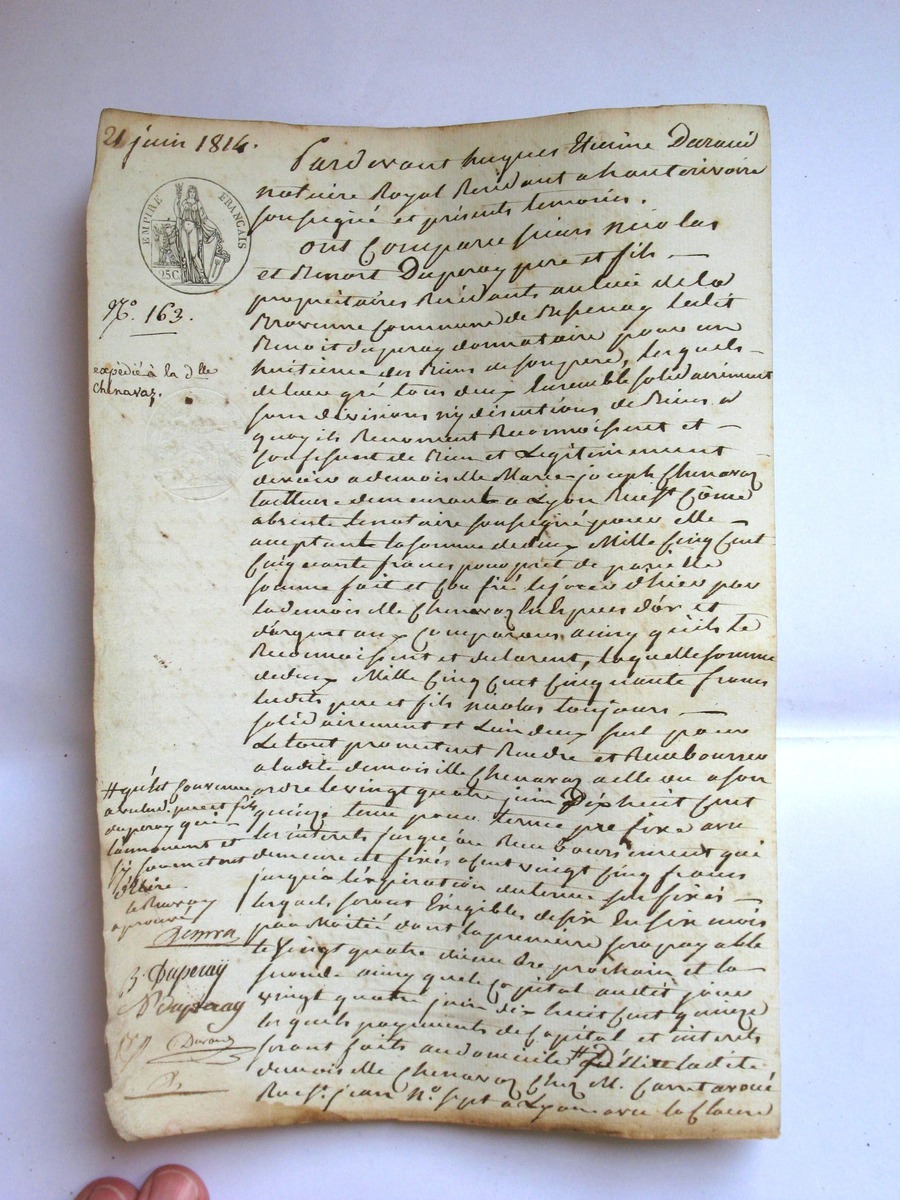 21 juin 1814.
EMPIRE FRANÇAIS
25C.
N.o 163.
expédié à la dlle
Chenavaz.
Pardevant hugues Etienne Durand
notaire Royal Residant a hauterivoire
soussigné et présents temoins.
ont Comparu sieurs nicolas
et Benoit Duperay pere et fils —
propriétaires Residants au lieu de la
Commune de ledit
Benoit duperay donnataire pour un
huitieme des Biens de son pere, lesquels
de leur gré tous deux Ensemble solidairement
sans divisions ny discutions de Biens a
quoy ils Renoncent Reconnoissent et —
confessent de Bien et Legitimement
devoir a demoiselle Marie-joseph Chenavaz
tailleuse demeurant a Lyon Rue St Côme
absente le notaire soussigné pour elle —
acceptant la somme de deux Mille Cinq Cent
Cinquante francs pour pret de pareille
somme fait et le jour d'hier par
la demoiselle Chenavaz En Espèces d'or et
d'argent aux Comparans ainsy qu'ils le
Reconnoissent et declarent, laquelle somme
de deux Mille Cinq Cent Cinquante francs
lesdits pere et fils nicolas toujours —
solidairement et L'un deux seul pour
Le tout promettent Rendre et Rembourser
a ladite demoiselle Chenavaz a elle ou a son
ordre le vingt quatre juin Dixhuit Cent
quinze tems pour terme prefixe avec
les interets jusqu'au Remboursement qui
demeurent fixés a Cent vingt Cinq francs
jusqu'a l'expiration du terme sus fixés —
lesquels seront Exigibles de six En six mois
par Moitié dont la premiere sera payable
le vingt quatre decembre prochain et la
seconde ainsy que le Capital audit jour
vingt quatre juin dix huit Cent quinze
lesquels payements de Capital et interets
seront faits au domicile # D'Elite ladite
demoiselle Chenavaz Chez M. Carret avoué
Rue St. jean No. sept a Lyon avec la Clause
# qu'ils
pere et fils
duperay qui
et
D'Elire
le Renvoy
approuvé
B. Duperaÿ
N Duperay
Durand